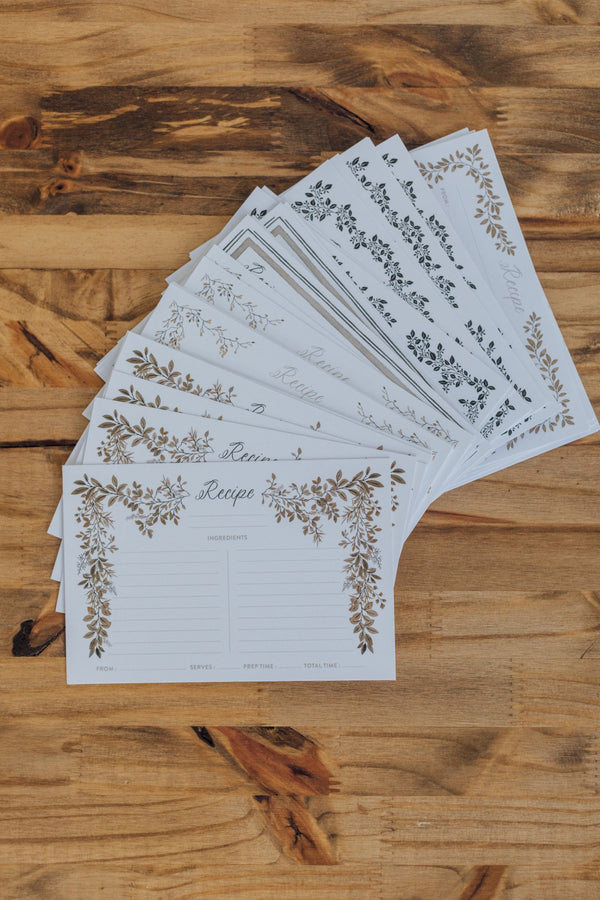 Recipe
INGREDIENTS
FROM: SERVES: PREP TIME: TOTAL TIME:
Recipe
Recipe
Recipe
Recipe